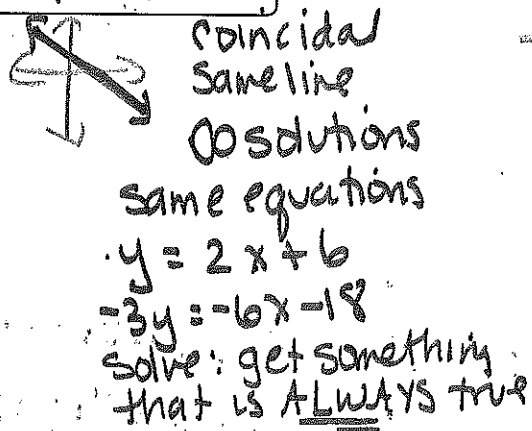 coincidal
same line
∞ solutions
same equations
y = 2x + 6
-3y = -6x - 18
solve: get something
that is ALWAYS true